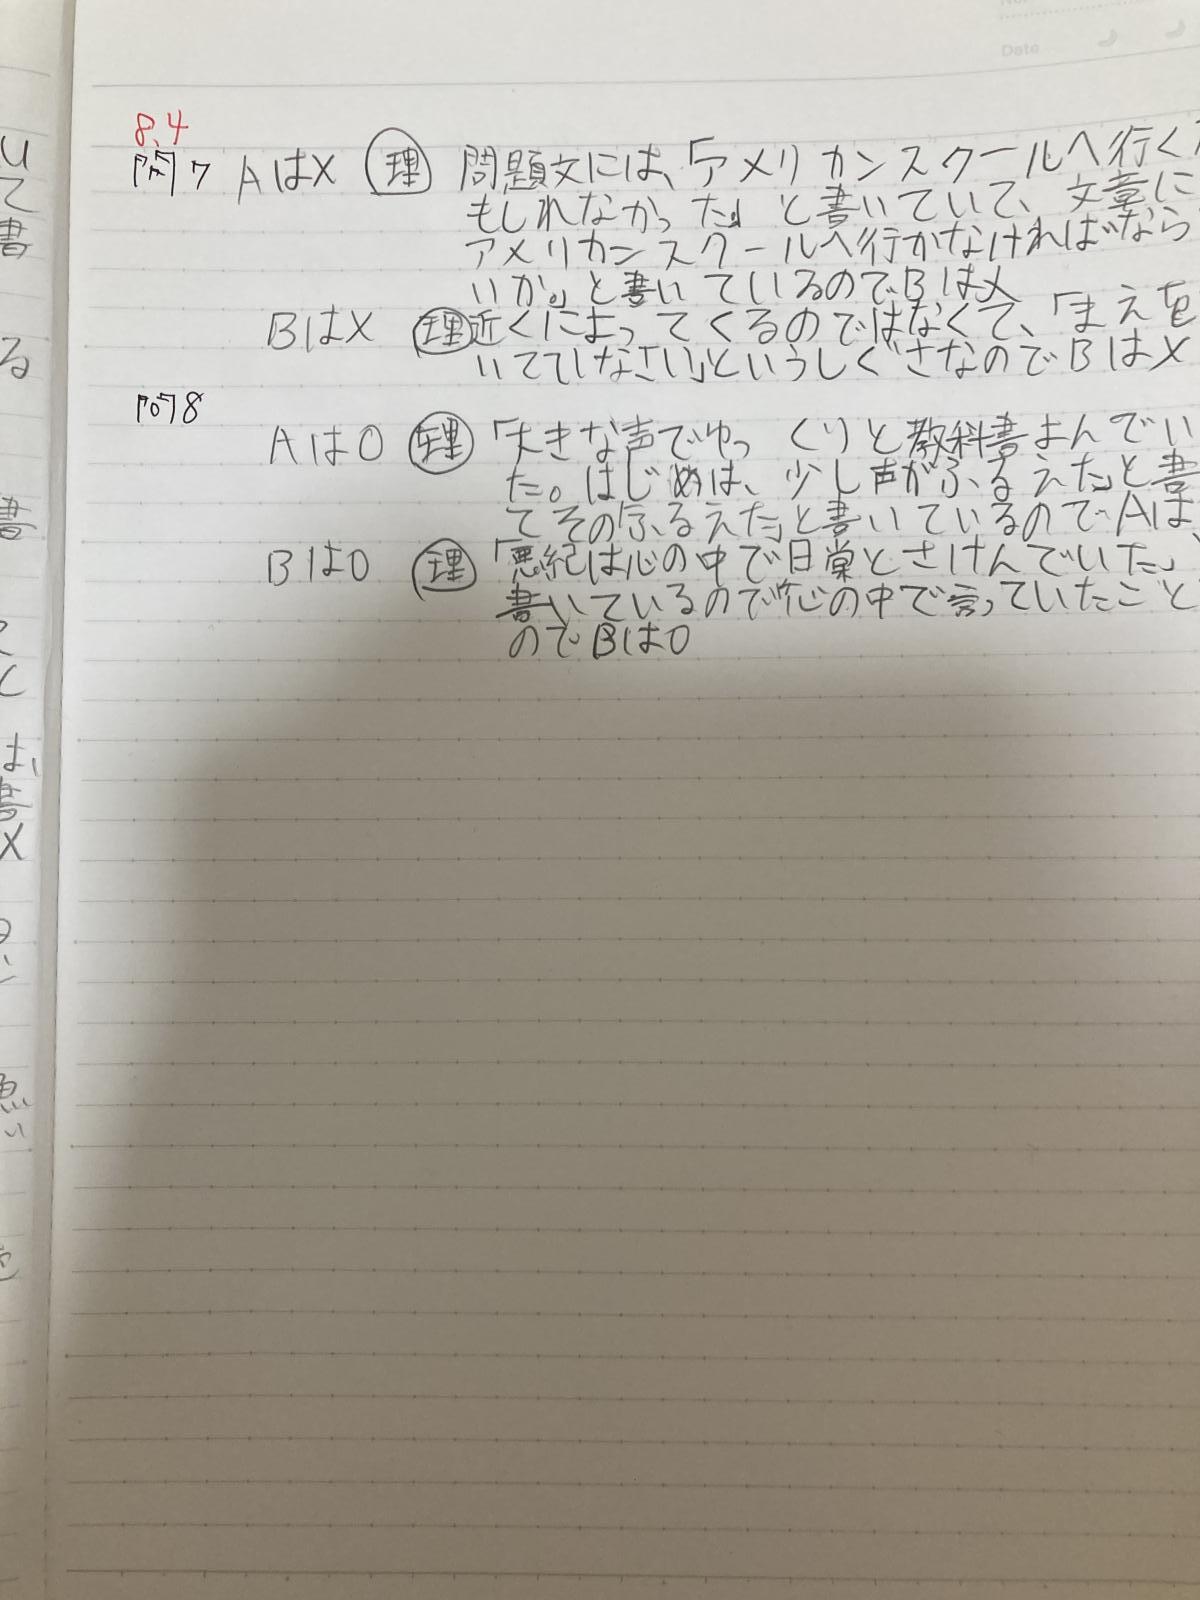 Date
8.4
問7 Aは× 理 問題文には、「アメリカンスクールへ行くか
もしれなかった」と書いていて、文章に
アメリカンスクールへ行かなければなら
いか。と書いているのでBは×
Bは× 理 近くによってくるのではなくて、「まえを
いてていなさい」というしぐさなのでBは×
問8
Aは○ 理 「大きな声でゆっくりと教科書よんでい
た。はじめは、少し声がふるえた」と書
てその「ふるえた」と書いているのでAは
Bは○ 理 「悪紀は心の中で日常とさけんでいた」
書いているので心の中で言っていたこと
のでBは○